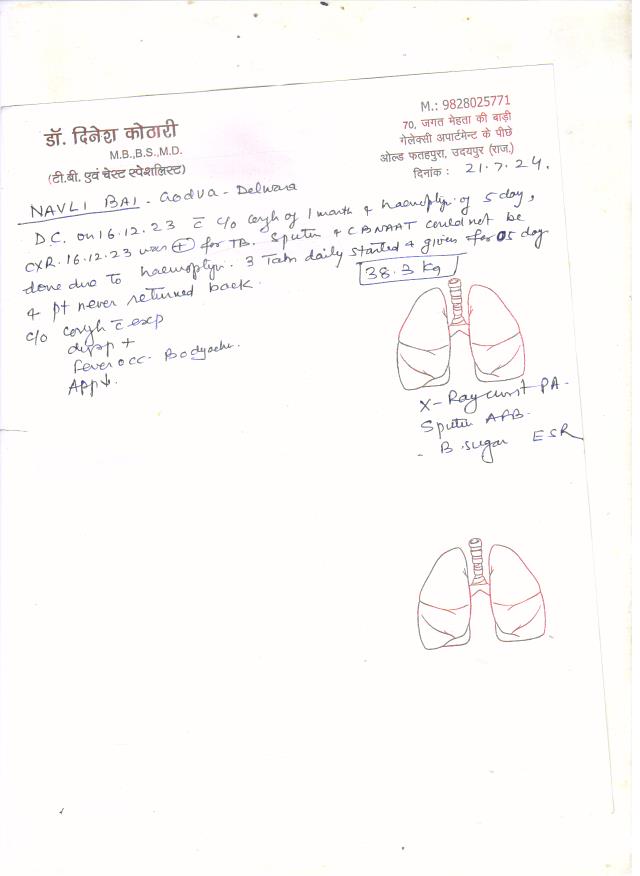 डॉ. दिनेश कोठारी
M.B.,B.S.,M.D.
(टी.बी. एुवं चेस्ट स्पेशलिस्ट)
M.: 9828025771
70, जगत मेहता की बाड़ी
गेलेक्सी अपार्टमेन्ट के पीछे
ओल्ड फतहपुरा, उदयपुर (राज.)
दिनांक : 21.7.24.
NAVLI BAI - Godva - Delwara
D.C. on 16.12.23 c̄ c/o cough of 1 month & haemoptysis of 5 day,
CXR. 16.12.23 was (+) for TB. Sputum & CBNAAT could not be
done due to haemoptysis. 3 Tabs daily started & given for 05 day
& pt never returned back.
38.3 kg
c/o cough c̄ exp
dysp +
fever occ. Bodyache.
App↓.
X-Ray chest PA -
Sputum AFB.
- B. sugar ESR